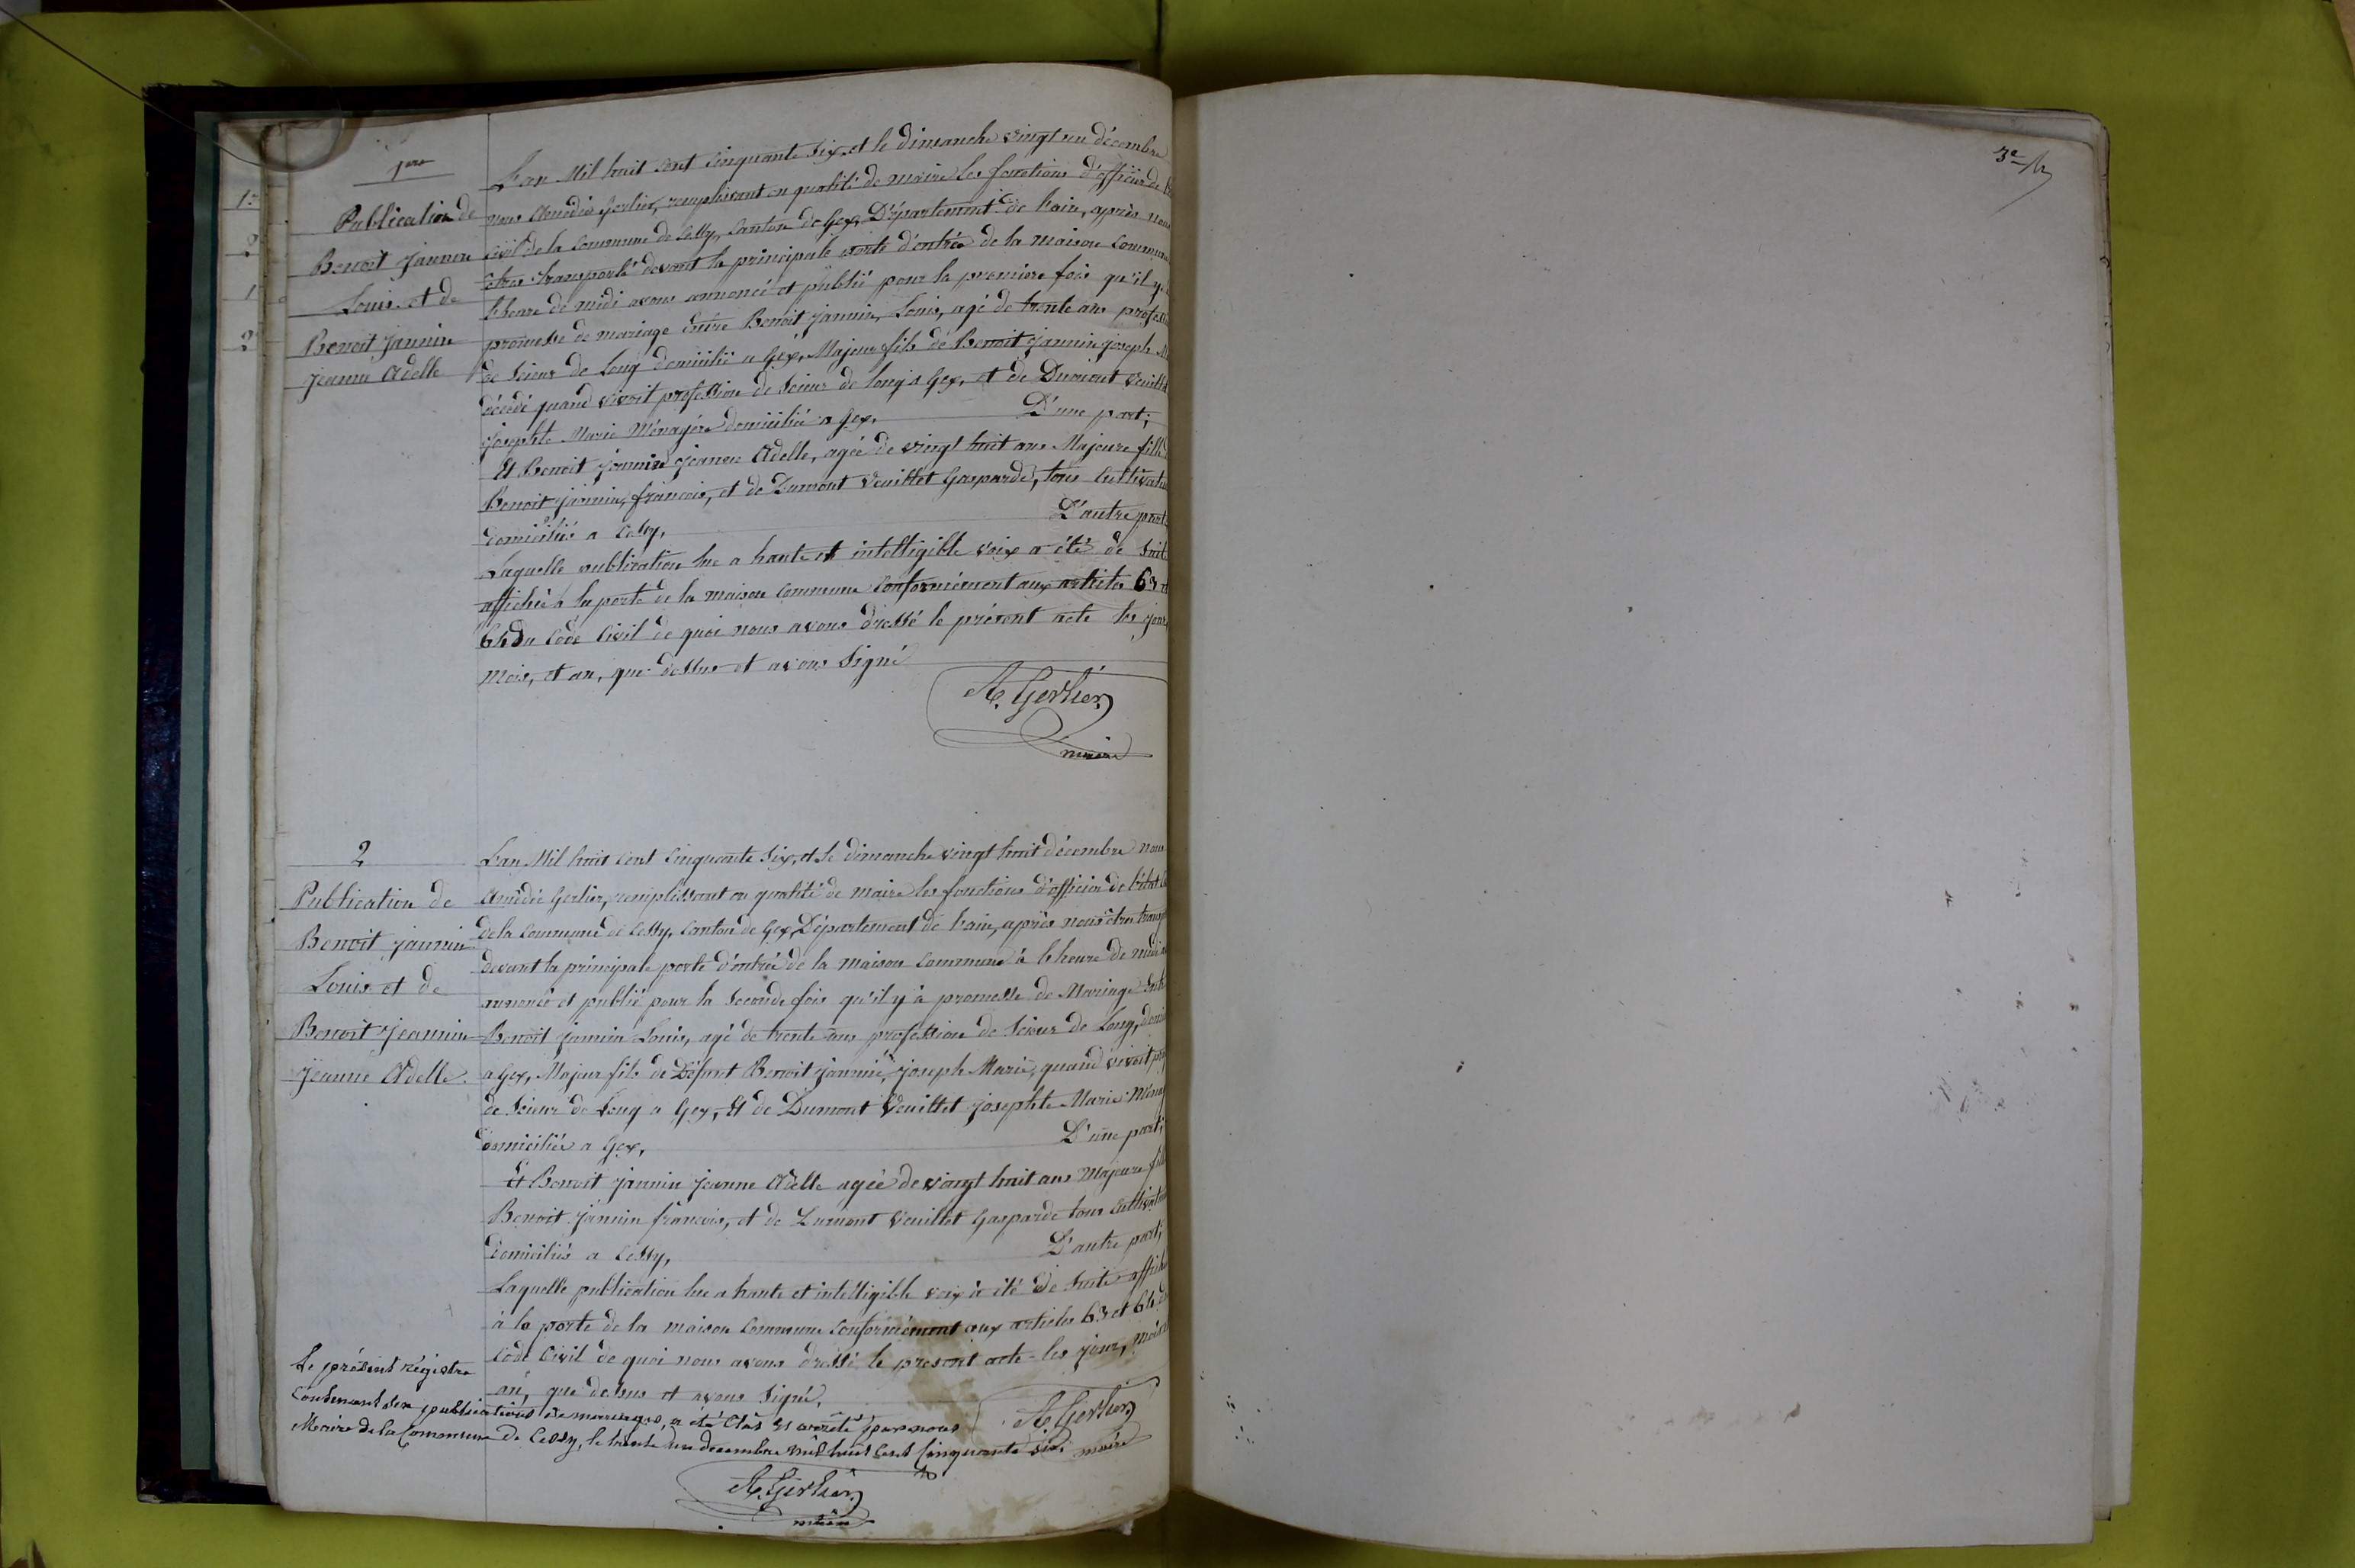 1re
Publication de
Benoit Jannin
Louis et de
Benoit Jannin
Jeanne Adelle
L'an Mil huit cent cinquante six, et le dimanche vingt un décembre
nous Amédée Gerlier, remplissant en qualité de maire les fonctions d'officier de
civil de la Commune de Cessy, Canton de Gex, Département de l'ain, après nous
être transporté devant la principale porte d'entrée de la maison Commune
l'heure de midi avons annoncé et publié pour la première fois qu'il y a
promesse de mariage Entre Benoit Jannin, Louis, agé de trente ans
de Scieur de Long domicilié a Gex, Majeur fils de Benoit Jannin Joseph
décédé quand vivoit profession de Scieur de long a Gex, et de Dumont Veuillet
Josephte Marie Ménagère domiciliée a Gex, D'une part;
Et Benoit Jannin Jeanne Adelle, agée de vingt huit ans Majeure fille
Benoit Jannin, françois, et de Dumont Veuillet Gasparde, tous
domiciliés a Cessy, D'autre part
Laquelle publication lue a haute et intelligible voix a été de suite
affichée a la porte de la maison commune Conformément aux articles 63 et
64 du Code Civil de quoi nous avons dressé le présent acte les jour
mois, et an, que dessus et avons Signé
A. Gerlier
maire
2
Publication de
Benoit Jannin
Louis et de
Benoit Jeannin
Jeanne Adelle.
L'an Mil huit Cent Cinquante Six, et le dimanche vingt huit décembre nous
Amédée Gerlier, remplissant en qualité de maire les fonctions d'officier de l'état
de la Commune de Cessy, Canton de Gex, Département de l'ain, après nous être
devant la principale porte d'entrée de la maison Commune à l'heure de midi
annoncé et publié pour la Seconde fois qu'il y à promesse de Mariage
Benoit Jannin Louis, agé de trente ans profession de Scieur de Long,
a Gex, Majeur fils de Défunt Benoit Jannin, Joseph Marie, quand vivoit
de Scieur de Long a Gex, Et de Dumont Veuillet Josephte Marie
domiciliée a Gex, D'une part;
Et Benoit Jannin Jeanne Adelle agée de vingt huit ans Majeure
Benoit Jannin françois, et de Dumont Veuillet Gasparde tous
domiciliés a Cessy, D'autre part;
Laquelle publication lue a haute et intelligible voix à été de Suite
à la porte de la maison Commune Conformément aux articles 63 et 64
Code Civil de quoi nous avons dressé le present acte les jour, mois
an, que dessus et avons Signé,
A. Gerlier
maire
Le présent régistre
Contenant des publications de mariages, a été Clos et arrêté par nous
Maire de la Commune de Cessy, le trente un decembre mil huit cent Cinquante Six,
A. Gerlier
maire